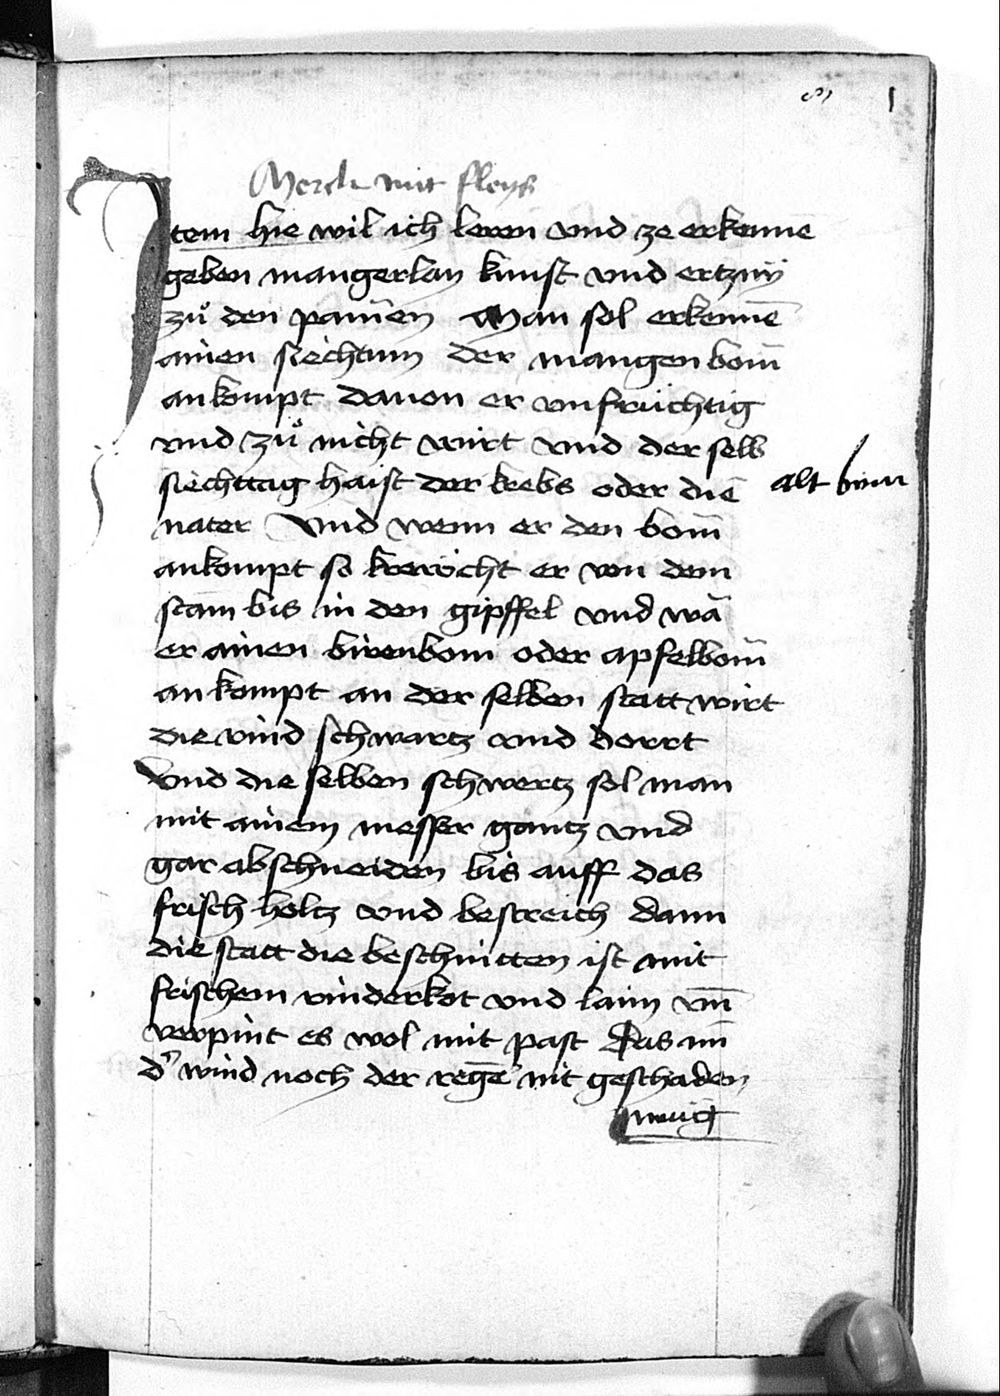 1
Merck mit fleys
Item hie wil ich leren vnd ze erkenne
geben mangerlay kunst vnd ertzny
zů den pamen Man sol erkennē
ainen siechtum der mangen bom̄
ankompt dauon er vnfrüchtig
vnd zů nicht wirt vnd der selb
siechttag haist der krebs oder die alt
nater Vnd wenn er den bom̄
ankompt so krewcht er von dem
stam bis in den gipffel vnd wā
er ainen birenbom oder apfelbom̄
ankompt an der selben statt wirt
die rind schwartz vnd dorrt
Vnd die selben schwertz sol man
mit ainem messer gantz vnd
gar abschneiden bis auff das
frisch holtz vnd bestreich dann
die statt die beschnitten ist mit
frischem rinderkot vnd laim vn̄
verpint es wol mit past Das im̄
d' wind noch der regē nit geschaden
mug